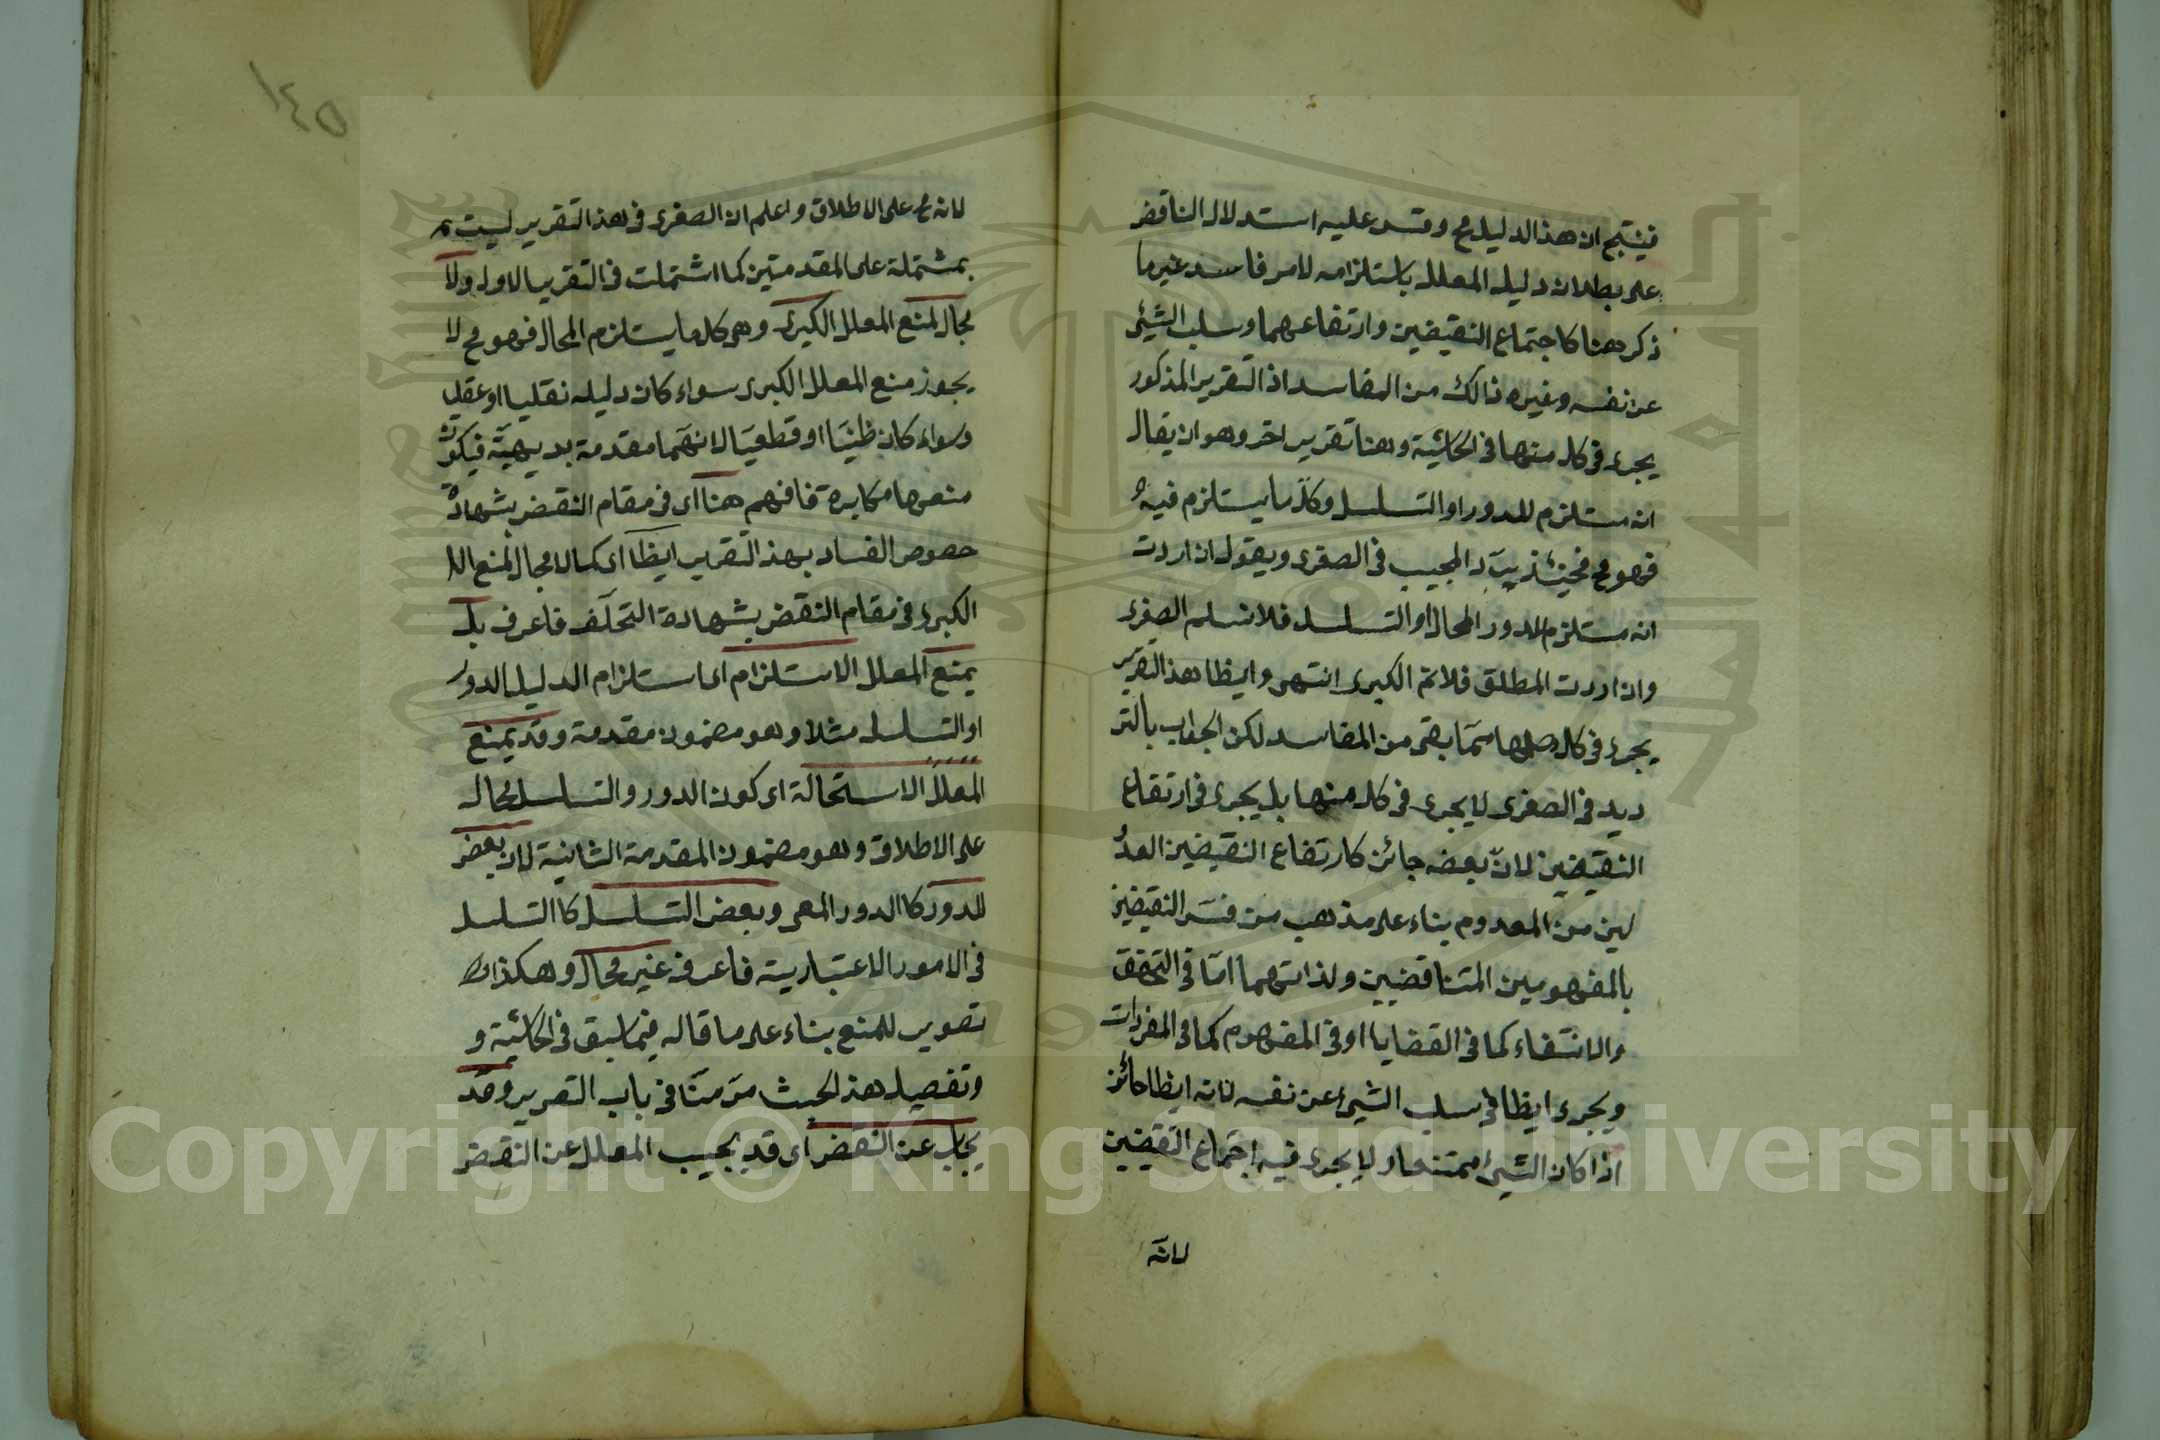 فينتج ان هذا الدليل مح وقس عليه استدلال الناقض
على بطلان دليل المعلل باستلزامه لامر فاسد غير ما
ذكر هنا كاجتماع النقيضين وارتفاعهما وسلب الشئ
عن نفسه وغيره ذالك من المفاسد اذ التقرير المذكور
يجرى فى كل منها فى الحاشية وهنا تقرير اخر وهو ان يقال
انه مستلزم للدور او التسلسل وكل ما يستلزم فيه
فهو مح فحينئذ يرد المجيب فى الصغرى ويقول ان اردت
انه مستلزم للدور المحال او التسلسل فلا نسلم الصغرى
وان اردت المطلق فلا تم الكبرى انتهى وايظا هذا التقرير
يجرى فى كل مما بقى من المفاسد لكن الجواب بالتر
ديد فى الصغرى لا يجرى فى كل منها بل يجرى فى ارتفاع
النقيضين لان بعضه جائز كارتفاع النقيضين العدو
لين من المعدوم بناء على مذهب من فسر النقيضين
بالمفهومين المتناقضين ولذاتهما اما فى التحقق
والانتفاء كما فى القضايا او فى المفهوم كما فى المفردات
ويجرى ايظا فى سلب الشيء عن نفسه لانه ايظا جائز
اذا كان الشيء ممتنعا ولا يجرى فيه اجتماع النقيضين
لانه
١٤٥
لانه مح على الاطلاق واعلم ان الصغرى فى هذا التقرير ليست
بمشتملة على المقدمتين كما اشتملت فى التقرير الاول ولا
مجال لمنع المعلل الكبرى وهى كل ما يستلزم المحال فهو مح لا
يجوز منع المعلل الكبرى سواء كان دليله نقليا او عقليا
وسواء كان ظنيا او قطعيا لانهما مقدمة بديهية فيكون
منعها مكابرة فافهم هنا اى فى مقام النقض بشهادة
خصوص الفساد بهذ التقرير ايظا اى كما لا مجال لمنع الا
الكبرى فى مقام النقض بشهادة التخلف فاعرف بل
يمنع المعلل الاستلزام اى استلزام الدليل الدور
او التسلسل مثلا وهو مضمون مقدمة وقد يمنع
المعلل الاستحالة اى كون الدور والتسلسل محاله
على الاطلاق وهو مضمون المقدمة الثانية لان بعض
للدور كا الدور المعى وبعض التسلسل كا التسلسل
فى الامور الاعتبارية فاعرفه غير محال وهكذا
تصوير للمنع بناء على ما قاله فيما سبق فى الحاشية و
وتفصيل هذ البحث مر منا فى باب التصرير وقد
يجاب عن النقض اى قد يجيب المعلل عن النقض
Copyright © King Saud University